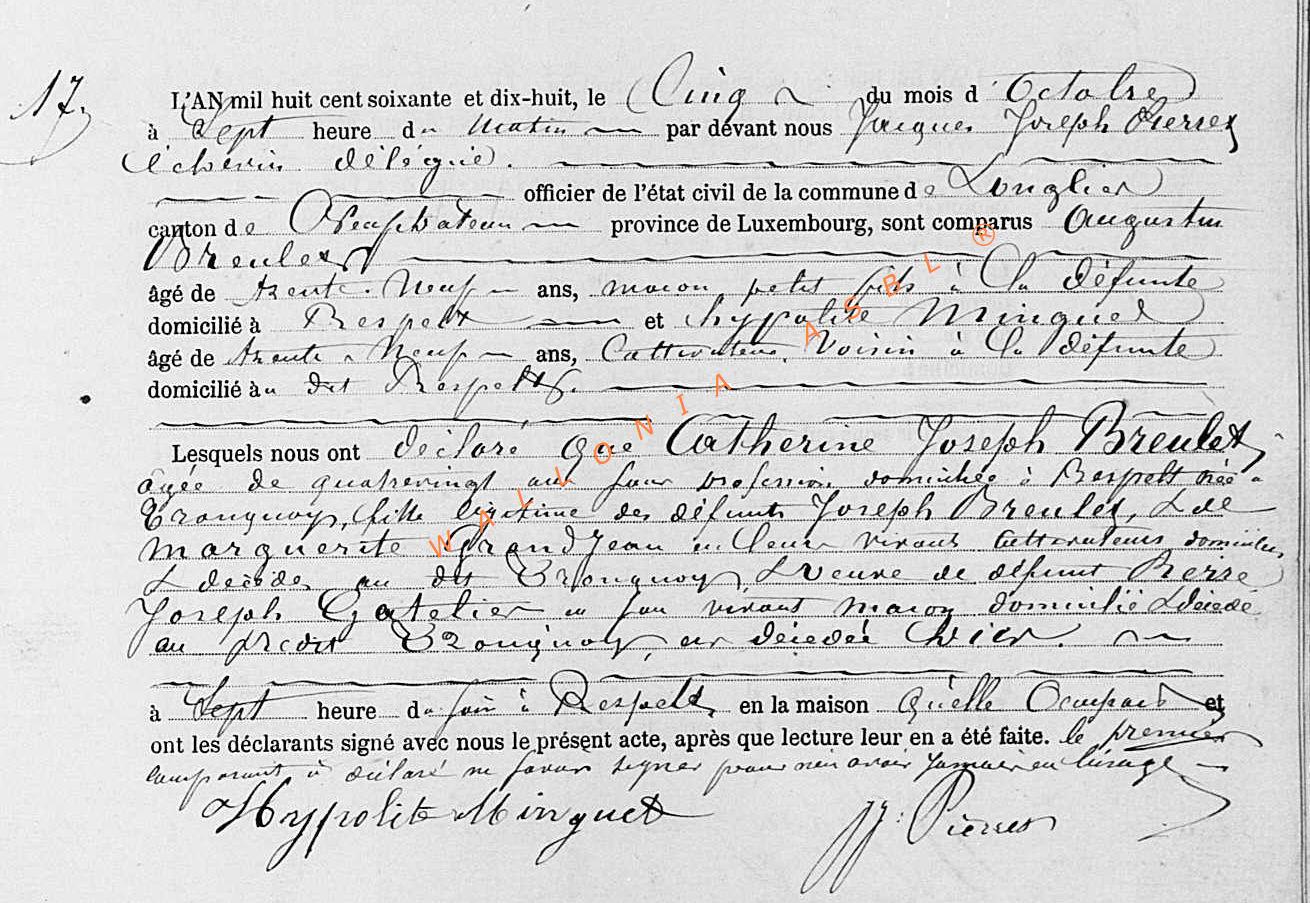 17
L'AN mil huit cent soixante et dix-huit, le Cinq du mois d'Octobre
à Sept heure du Matin par devant nous Jacques Joseph Pierret
Echevin délégué.
officier de l'état civil de la commune de Longlier
canton de Neufchateau province de Luxembourg, sont comparus Augustin
Breulet
âgé de trente-Neuf ans, macon petit fils à la défunte
domicilié à Respelt et hyppolite Minguet
âgé de trente Neuf ans, Cultivateur, Voisin à la défunte
domicilié au dit Respelt.
Lesquels nous ont déclaré que Catherine Joseph Breulet,
agée de quatrevingt ans sans profession domiciliée à Respelt née a
Tronquoy, fille légitime des défunts Joseph Breulet, & de
Marguerite GrandJean en leur vivant Cultivateurs domiciliés
& décédés au dit Tronquoy, & veuve de défunt Pierre
Joseph Gatelier en son vivant macon domicilié & décédé
au prédit Tronquoy, est décédée hier.
à Sept heure du soir à Respelt, en la maison qu'elle Occupait et
ont les déclarants signé avec nous le présent acte, après que lecture leur en a été faite. le premier
comparant à déclaré ne savoir signer pour n'en avoir Jamais eu l'usage
Hyppolite Minguet JJ. Pierret
WALLONIA ASBL ®